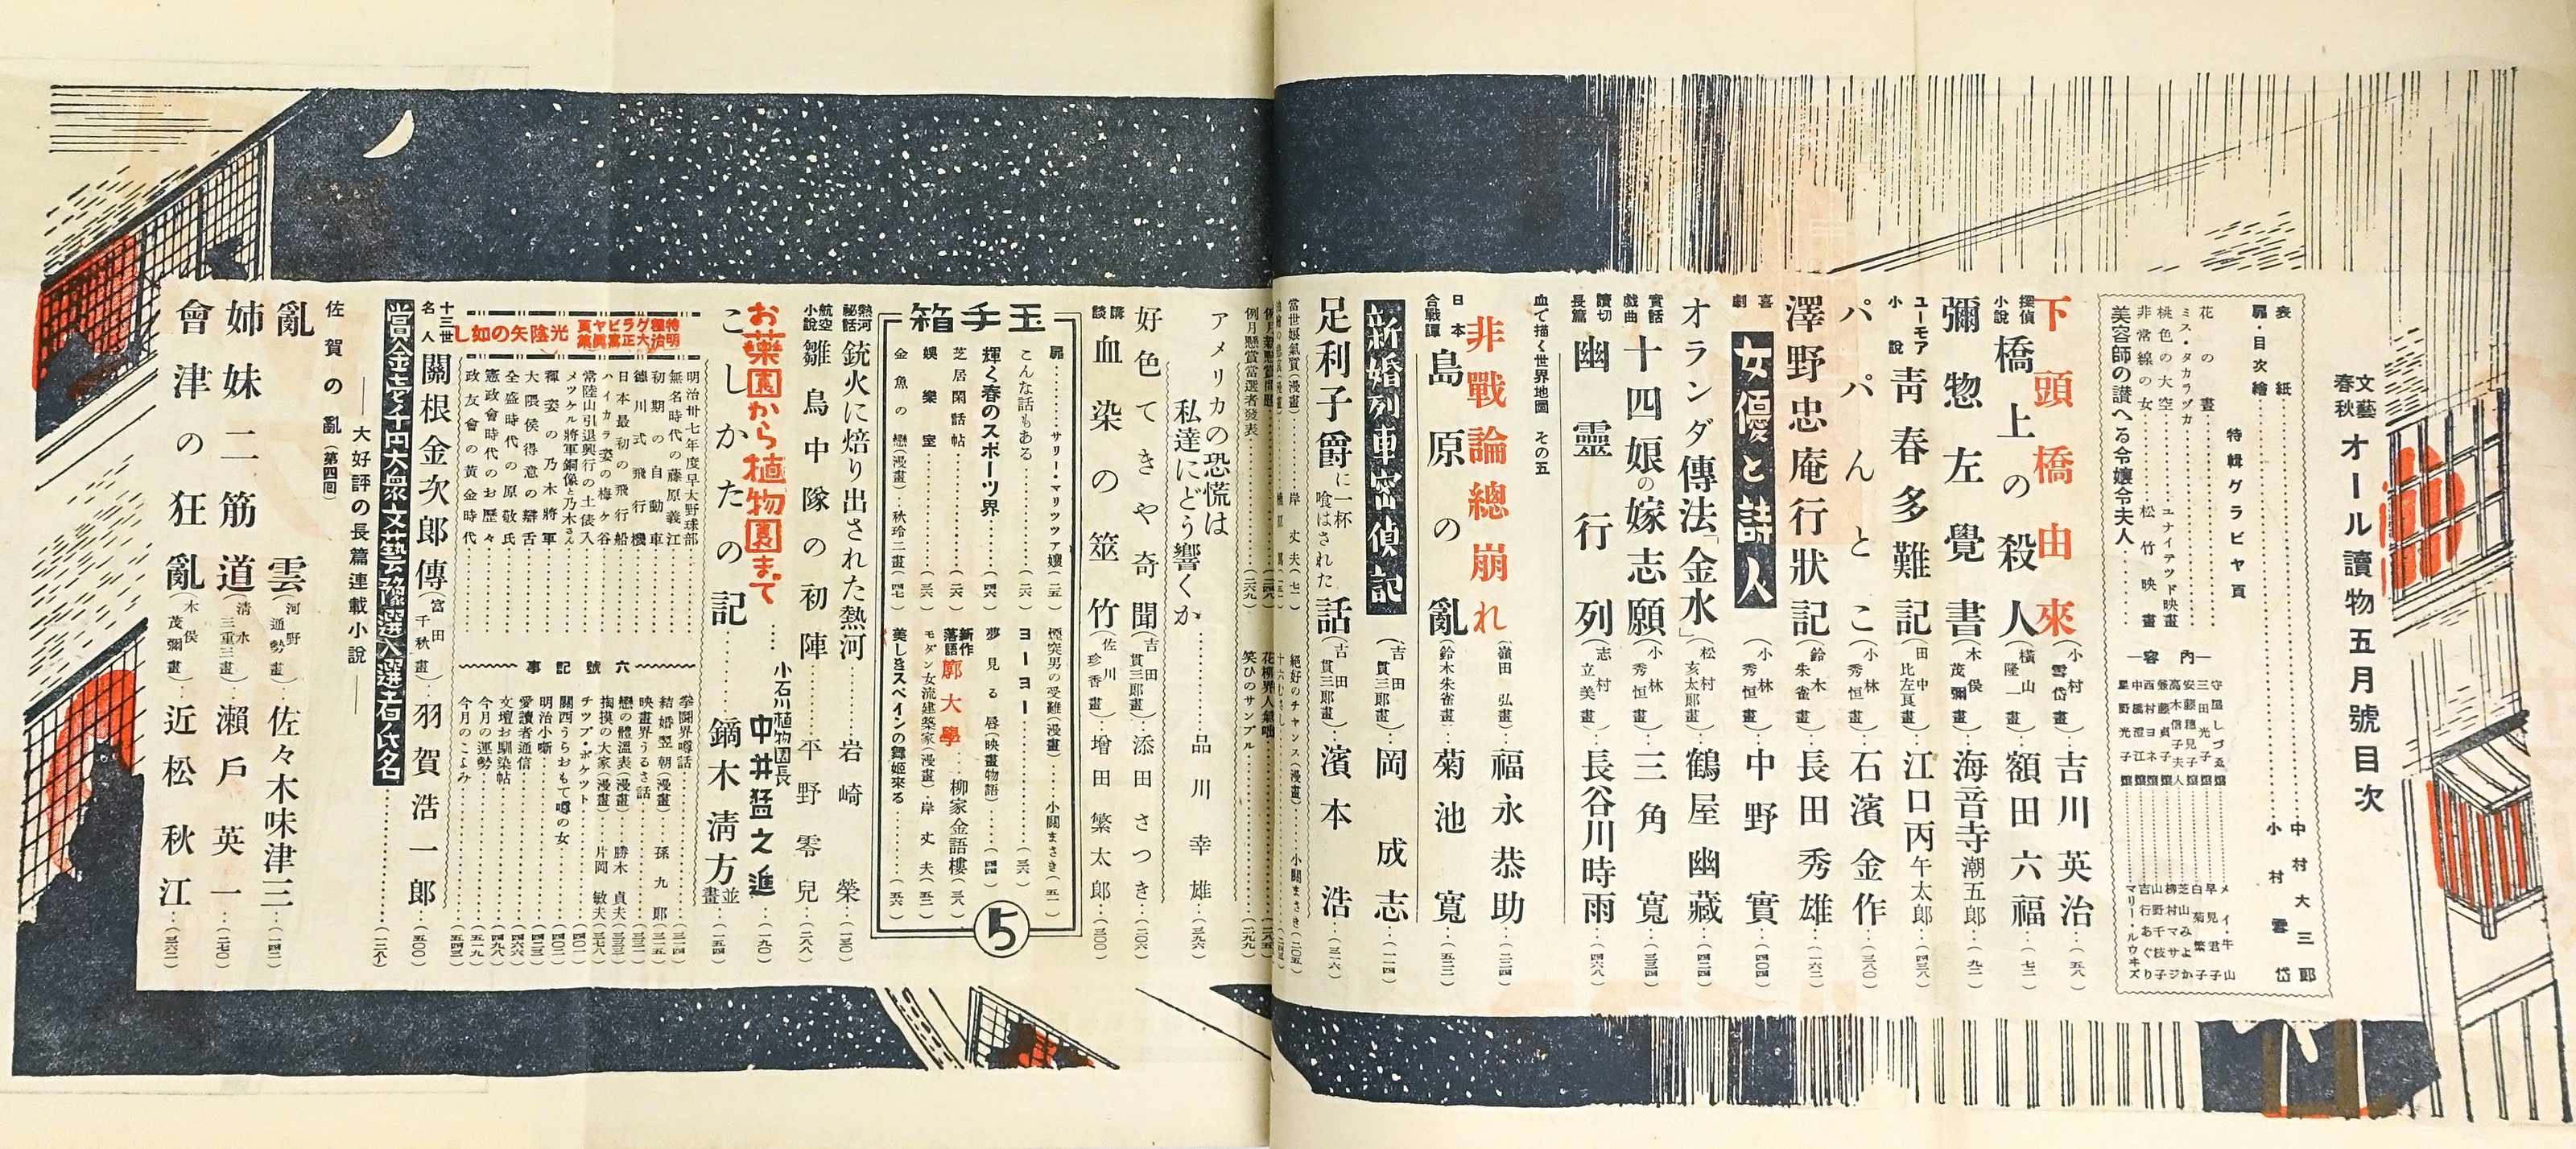 文藝春秋 オール讀物五月號目次
表紙……中村大三郎
扉・目次繪……小村雪岱
特輯グラビヤ頁
花の晝……松竹映畫
ミス・タカラヅカ……ユナイテツド映畫
桃色の大空
非常線の女
美容師の讃へる令孃令夫人
内容
下頭橋由來(小村雪岱畫)…吉川英治…(五八)
探偵小說 橋上の殺人(横山隆一畫)…額田六福…(七二)
彌惣左覺書(木俣茂彌畫)…海音寺潮五郎…(九二)
ユーモア小說 靑春多難記(田中比左良畫)…江口丙午太郎…(四三八)
パパんとこ(小林秀恒畫)…石濱金作…(三八〇)
澤野忠庵行狀記(鈴木朱雀畫)…長田秀雄…(一六二)
喜劇 女優と詩人(小林秀恒畫)…中野實…(四〇四)
オランダ傳法「金水」(松村亥太郎畫)…鶴屋幽藏…(四二四)
實話戲曲 十四娘の嫁志願(小林秀恒畫)…三角寛…(三三四)
讀切長篇 幽靈行列(志村立美畫)…長谷川時雨…(四六八)
血で描く世界地圖 その五
非戰論總崩れ(嶺田弘畫)…福永恭助…(二二四)
日本合戰譚 島原の亂(鈴木朱雀畫)…菊池寛…(五二二)
新婚列車密偵記(吉田貫三郎畫)…岡成志…(一一四)
足利子爵に一杯喰はされた話(吉田貫三郎畫)…濱本浩…(三一六)
當世娘氣質(漫畫)……岸丈夫
絕好のチャンス(漫畫)……小關まさき
例月懸賞當選者發表……(二六九)
笑ひのサンプル……(二九九)
アメリカの恐慌は私達にどう響くか……品川幸雄…(三九六)
好色てきや奇聞(吉田貫三郎畫)…添田さつき…(二〇六)
講談 血染の筮竹(佐川珍香畫)…增田繁太郎…(三〇〇)
玉手箱
扉……サリー・マリッツア孃(二五)
こんな話もある……(二六)
輝く春のスポーツ界……(四八)
芝居閑話帖……(二六)
娛樂室……(三六)
金魚の戀(漫畫)…秋玲二畫(四七)
煙突男の受難(漫畫)……小關まさき(五一)
ヨーヨー……(三六)
夢見る唇(映畫物語)……(四四)
新作落語 廓大學……柳家金語樓(三八)
モダン女流建築家(漫畫)…岸丈夫(五二)
美しきスペインの舞姬來る……(五六)
5
熱河祕話 銃火に焙り出された熱河……岩崎榮…(一三〇)
航空小說 雛鳥中隊の初陣……平野零兒…(二八八)
お藥園から植物園まで……小石川植物園長 中井猛之進…(一九〇)
こしかたの記……鏑木淸方並畫…(一五四)
特種グラビヤ頁 明治大正寫眞集 光陰矢の如し
明治卅七年度早大野球部
無名時代の藤原義江
初期の自動車
德川式飛行機
日本最初の飛行船
ハイカラ姿の梅ケ谷
常陸山引退興行の土俵入
メツケル將軍銅像と乃木さん
褌姿の乃木將軍
大隈侯得意の辯舌
全盛時代の原敬氏
憲政會時代のお歷々
政友會の黃金時代
六號記事
拳鬪界噂話……(三一四)
結婚翌朝(漫畫)……孫九郎(三一五)
映畫界うるさ話……(三三二)
戀の體溫表(漫畫)……勝木貞夫(三三三)
掏摸の大家(漫畫)……片岡敏夫(三七八)
チップ・ポケット……(四〇一)
關西うらおもて噂の女……(四〇二)
明治小噺……(四二三)
愛讀者通信……(四六六)
文壇お馴染帖……(四九八)
今月の運勢……(五一九)
今月のこよみ……(五四三)
十三世名人 關根金次郎傳(富田千秋畫)…羽賀浩一郎…(五〇〇)
當金壹千円大衆文藝豫選入選者氏名……(一二八)
――大好評の長篇連載小說――
佐賀の亂(第四回)
亂雲(河野通勢畫)…佐々木味津三…(一四二)
姉妹二筋道(淸水三重三畫)…瀨戶英一…(二七〇)
會津の狂亂(木俣茂彌畫)…近松秋江…(三六二)